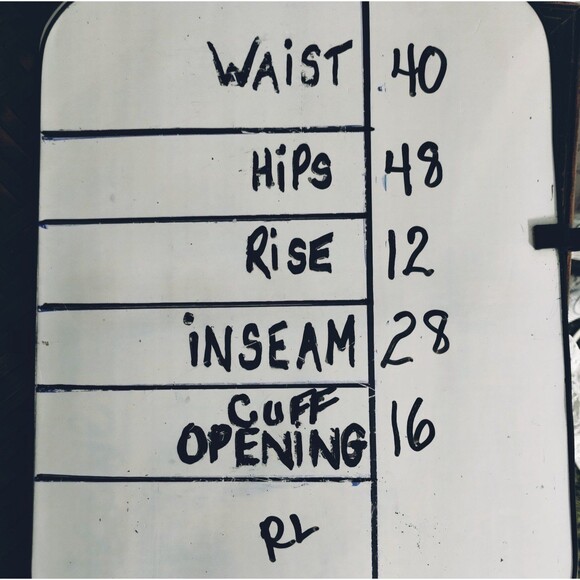 WAIST 40
HIPS 48
RISE 12
INSEAM 28
CUFF
OPENING 16
RL